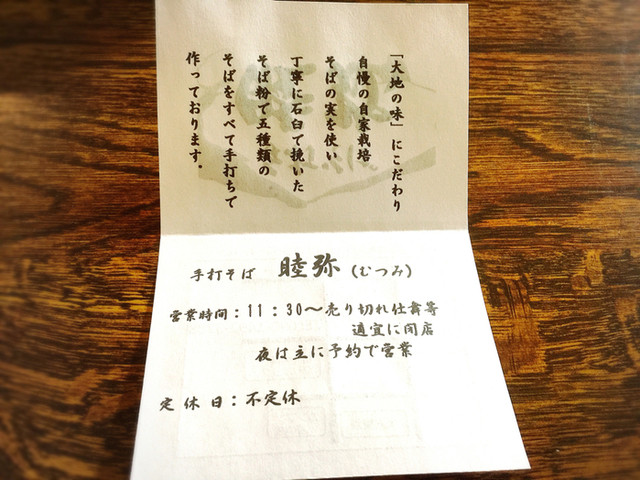 「大地の味」にこだわり
自慢の自家栽培
そばの実を使い
丁寧に石臼で挽いた
そば粉で五種類の
そばをすべて手打ちで
作っております。
手打そば 睦弥 (むつみ)
営業時間：11：30～売り切れ仕舞等
適宜に閉店
夜は主に予約で営業
定休日：不定休